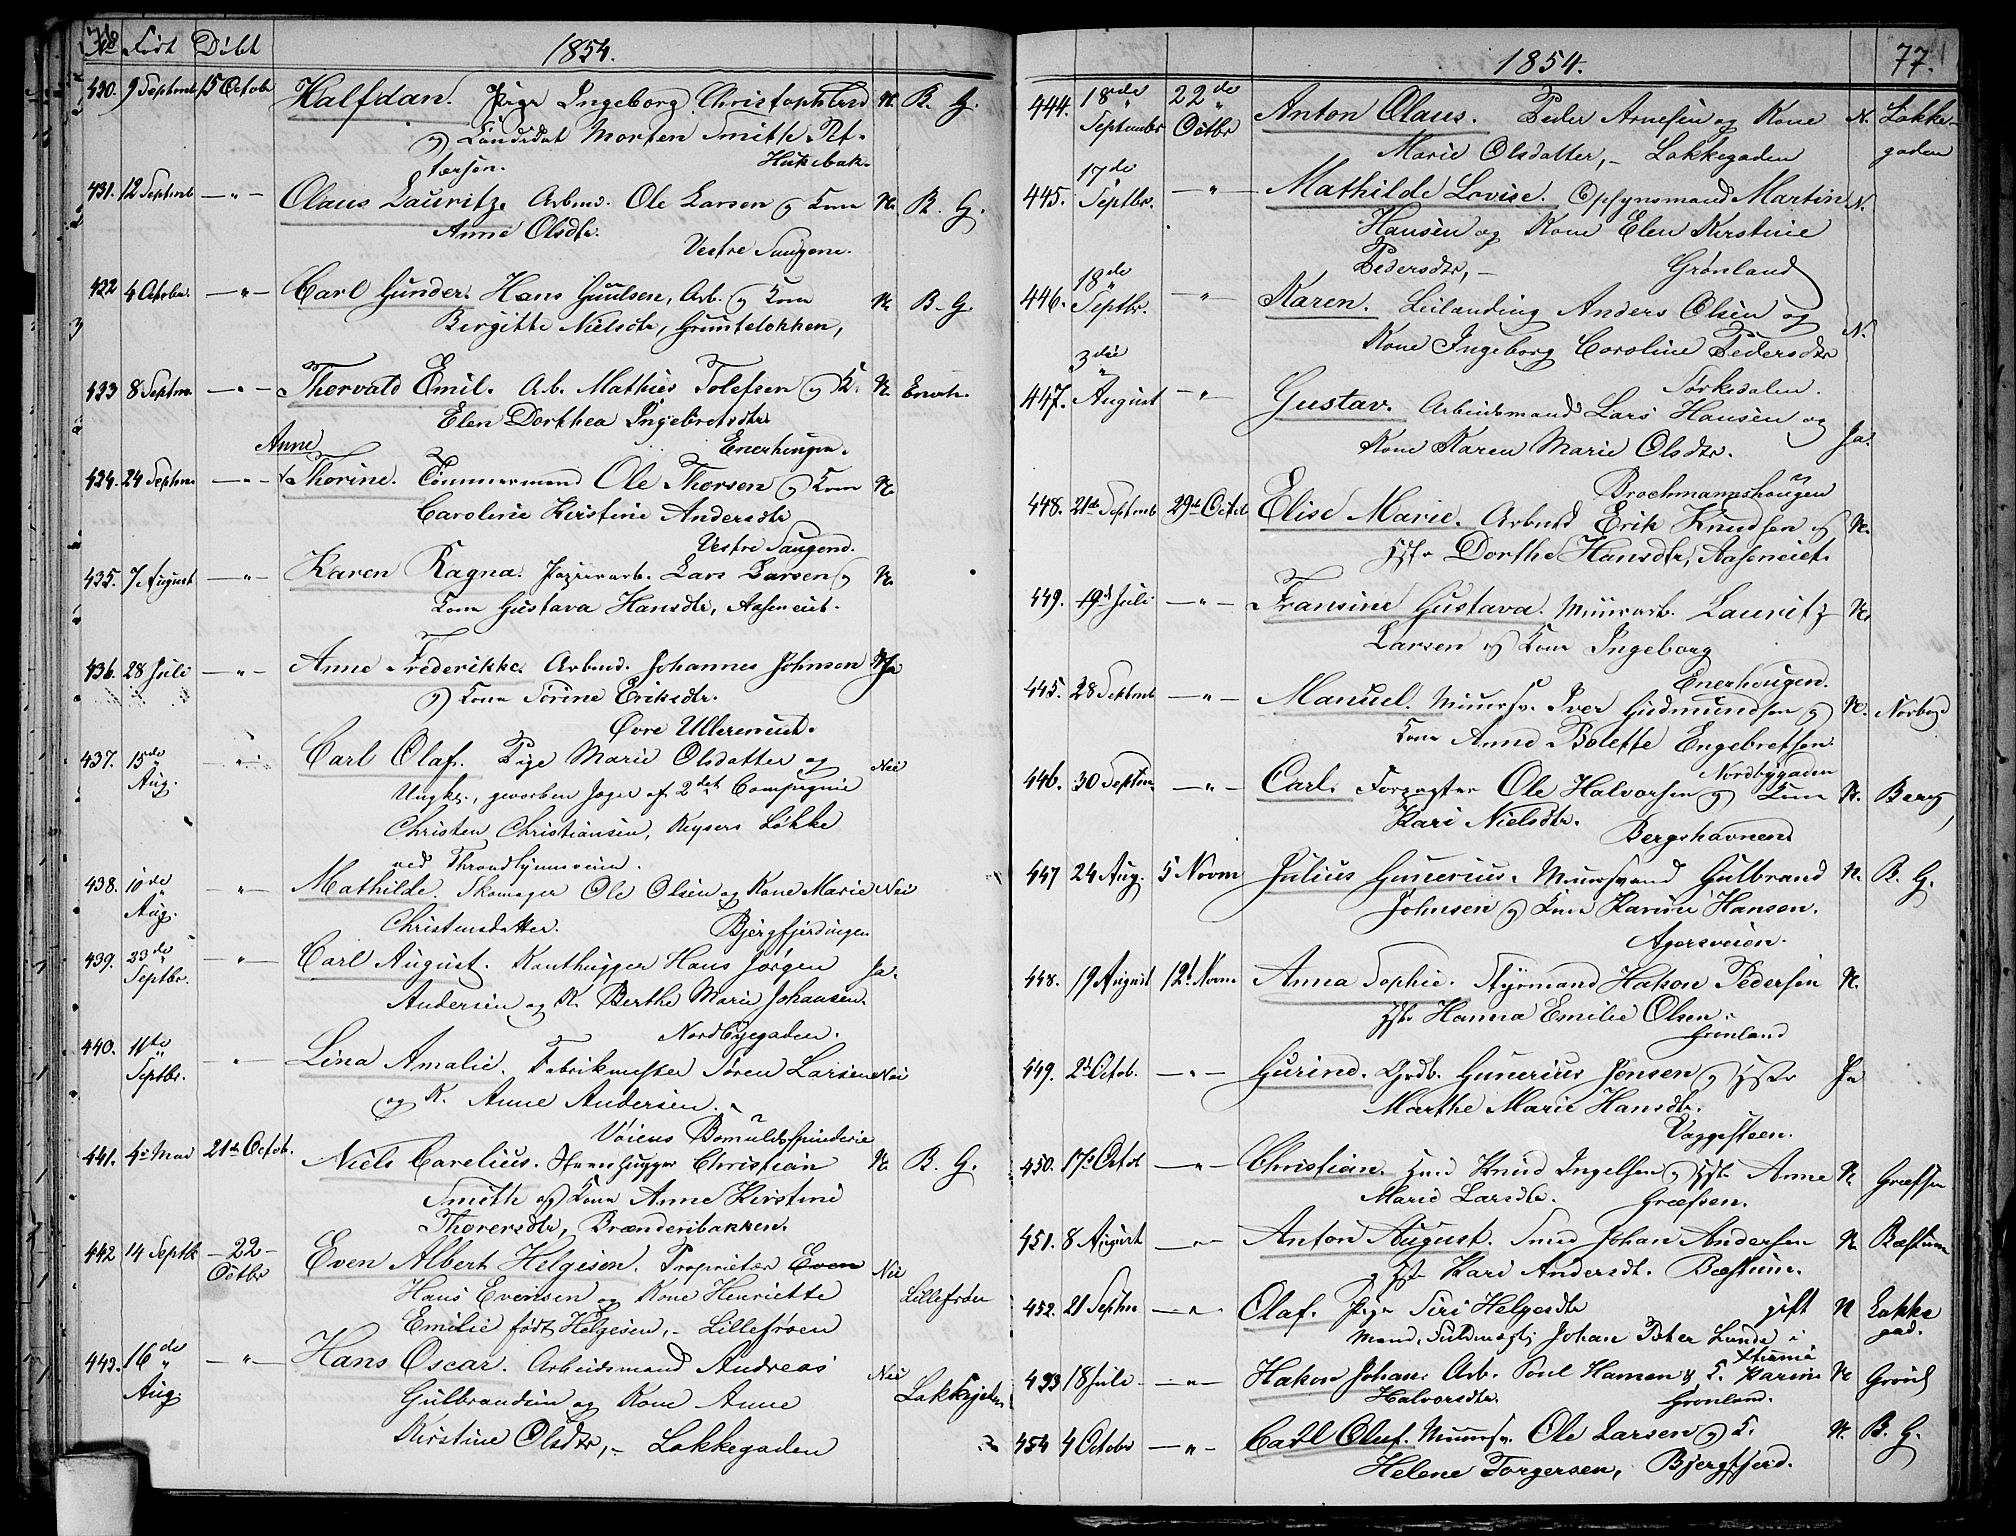 76
No Født Döbt 1854.
430. 9 Septmb 15 Octobr Halfdan. Pige Ingeborg Christophersd N. B. G.
og Candidat Morten Smith Pet-
tersen. Hukebak.
431. 12 Septmb — " — Olaus Lauritz. Arbmd. Ole Larsen og Kone N. B. G.
Anne Olsdtr.
Vestre Saugene.
432 4 Octobr. — " — Carl Gunder. Hans Guulsen, Arb. og Kone N. B. G.
Birgitte Nielsdtr, Grünteløkken,
433 8 Septm. — " — Thorvald Emil. Arb. Mathies Tolefsen og K. N. Enerh.
Elen Dorthea Ingebretsdtr
Enerhougen.
Anne
434. 24 Septm. — " — Thorine. Tømmermand Ole Thorsen og Kone N.
Caroline Kirstine Andersdtr
Vestre Saugend.
435. 7 August — " — Karen Ragna. Papirarb. Lars Larsen og N.
Kone Gustava Hansdtr, Aaseneiet.
436. 28 Juli — " — Anne Frederikke. Arbmd. Johannes Johnsen Ja
og Kone Sörine Eriksdtr.
Øvre Ullereneiet.
437. 15de Aug. — " — Carl Olaf. Pige Marie Olsdatter og Nei
Ungk., gevorben Jæger af 2det Compagnie
Christen Christiansen, Keysers Løkke
ved Throndhjemsveien.
438. 10de Aug. — " — Mathilde. Skomager Ole Olsen og Kone Marie Nei
Christensdatter. Bjergfjerdingen
439. 23de Septbr. — " — Carl August. Kanthugger Hans Jørgen Ja.
Andersen og K. Berthe Marie Johansen.
Nordbyegaden.
440. 11te Septbr. — " — Lina Amalie. Fabrikmester Søren Larsen Nei
og K. Anne Andersen.
Vøiens Bomuldsspinderie
441. 4de Mai 21de Octob. Niels Carelius. Steenhugger Christian N. B. G.
Smith og Kone Anne Kirstine
Thorersdtr, Brænderibakken.
442 14 Septbr — 22 — Octbr Even Albert Helgesen. Proprietær Even Nei
Hans Evensen og Kone Henriette Lillefrøen
Emilie født Helgesen, - Lillefrøen
443. 16de Aug. — " — Hans Oscar. Arbeidsmand Andreas Nei
Gulbrandsen og Kone Anne
Kirstine Olsdtr, - Lakkegaden
1854. 77.
444. 18de Septembr 22de Octbr Anton Olaus. Peder Arnesen og Kone N. Lakke-
Marie Olsdatter, - Lakkegaden gaden
445. 17de Septbr. — " — Mathilde Lovise. Opsynsmand Martin N.
Hansen og Kone Elen Kirstine
Pedersdtr, - Grønland
446. 18de Septbr. — " — Karen. Leilænding Anders Olsen og
Kone Ingeborg Caroline Pedersdtr N.
Sørkedalen.
447. 3die August — " — Gustav. Arbeidsmand Lars Hansen og
Kone Karen Marie Olsdtr. Ja.
Brochmannshougen
448. 21de Septmb 29de Octob Elise Marie. Arbmd Erik Knudsen og N.
Hstr Dorthe Hansdtr, Aaseneiet.
449. 19de Juli — " — Fransine Gustava. Muurarb. Lauritz N.
Larsen og Kone Ingeborg
Enerhougen.
445. 28 Septmb — " — Manuel. Muursv. Iver Gudmundsen og N. Norbygd
Kone Anne Bolette Engebretsen.
Nordbygaden
446. 30 Septm. — " — Carl. Forpagter Ole Halvorsen og Kone N. Berg
Kari Nielsdtr.
Bergshavnend
447 24 Aug. 5 Novm Julius Gunerius. Muursvend Gulbrand N. B. G.
Johnsen og Kone Karine Hansen.
Agersveien.
448. 19 August 12t Novm Anna Sophie. Styrmand Hakon Pedersen N.
Hstr Hanna Emilie Olsen.
Grønland
449. 2d Octob. — " — Gurine. Grdb. Gunerius Jensen og Hstr Ja
Marthe Marie Hansdtr.
Vaggesteen.
450. 17d Octob — " — Christian. Knud Ingelsen og Hstr Anne N. Græfsen
Marie Larsdtr. Græfsen.
451. 8 August — " — Anton August. Smed Johan Andersen N. Bæstum
og Hstr Kari Andersdtr. Bæstum.
452. 21 Septm — " — Olaf. Pige Siri Helgesdtr gift N Lakke
Mand, Fuldmægt. Johan Peter Lunde i gad.
Xtiania
453 18 Juli. — " — Hakon Johan. Arb. Poul Hansen & K. Karine N Grønl
Halvorsdtr. Grønland.
454 4 Octobr — " — Carl Oluf. Muursv. Ole Larsen og K. N. B. G.
Helene Torgersen, Bjergfjerd.